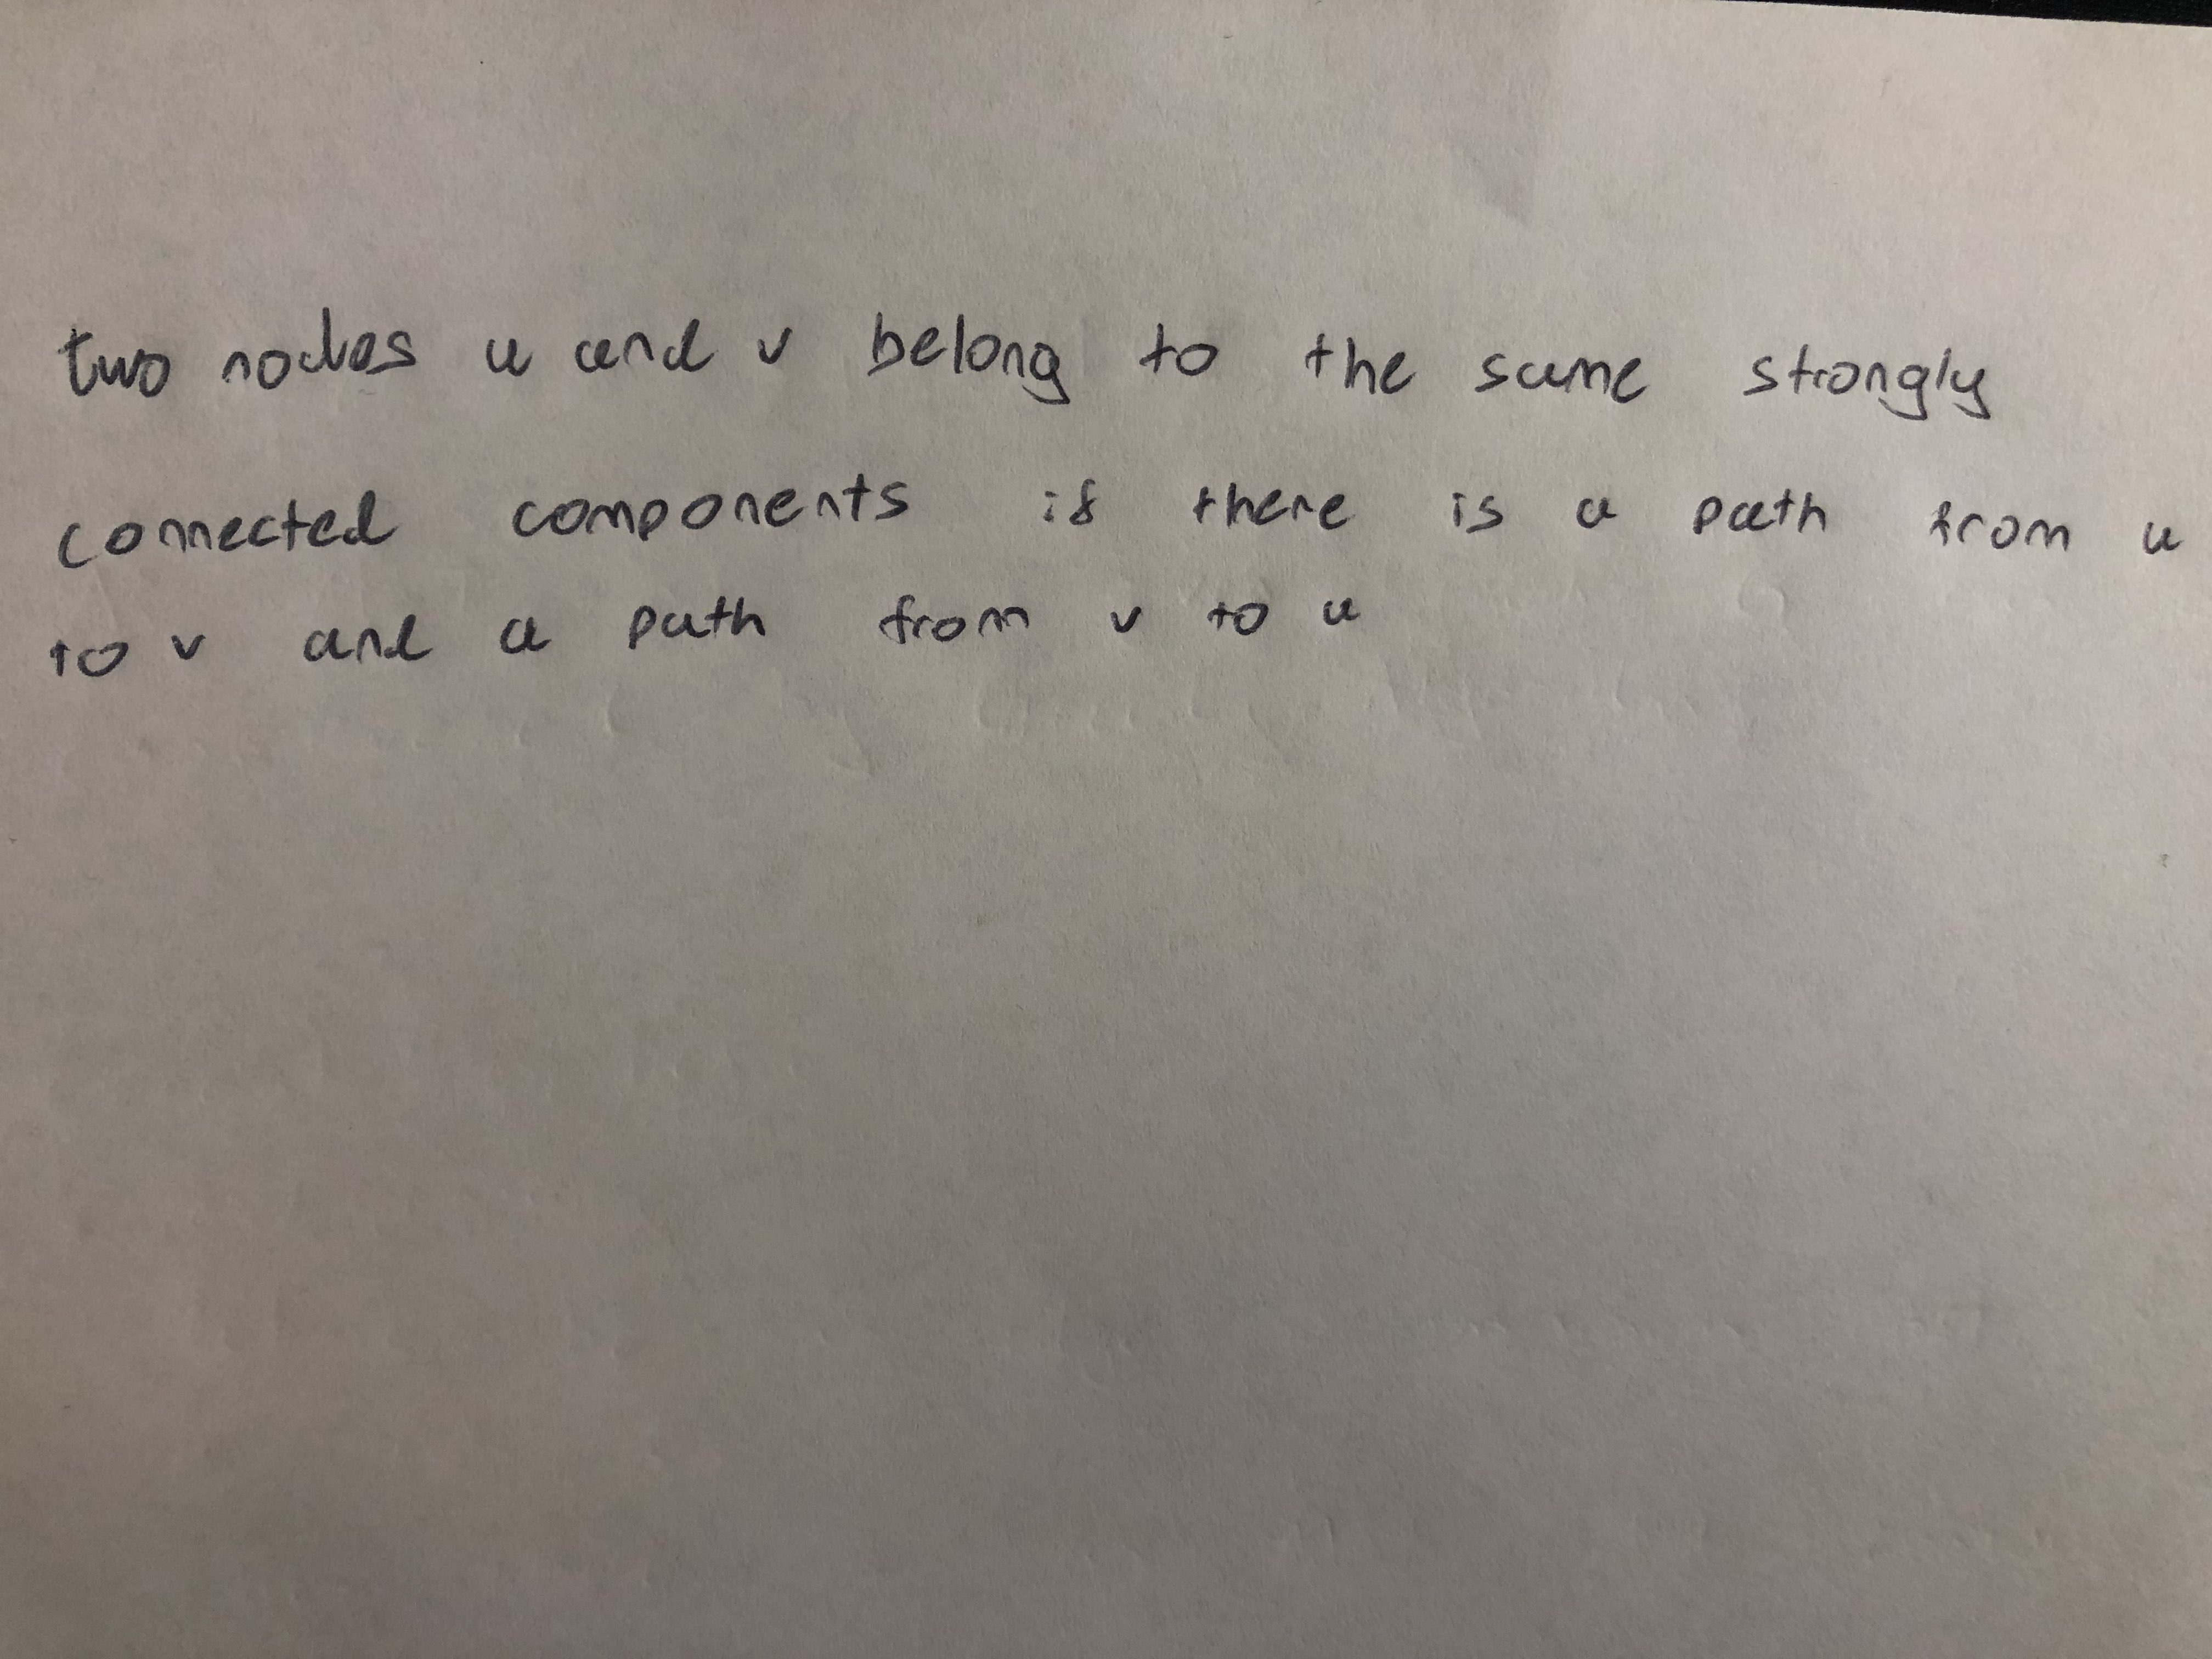 two nodes u and v belong to the same strongly
connected components if there is a path from u
to v and a path from v to u